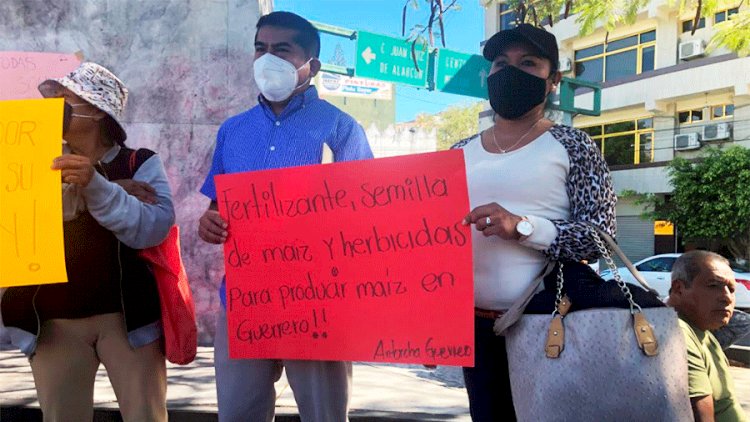 ODAS
OR
SU
!
C. JUAN RUIZ
DE ALARCÓN
CEN
PINTURAS
Fertilizante, semilla
de maíz y herbicidas
Para producir maíz en
Guerrero!!
Antorcha Guerrero